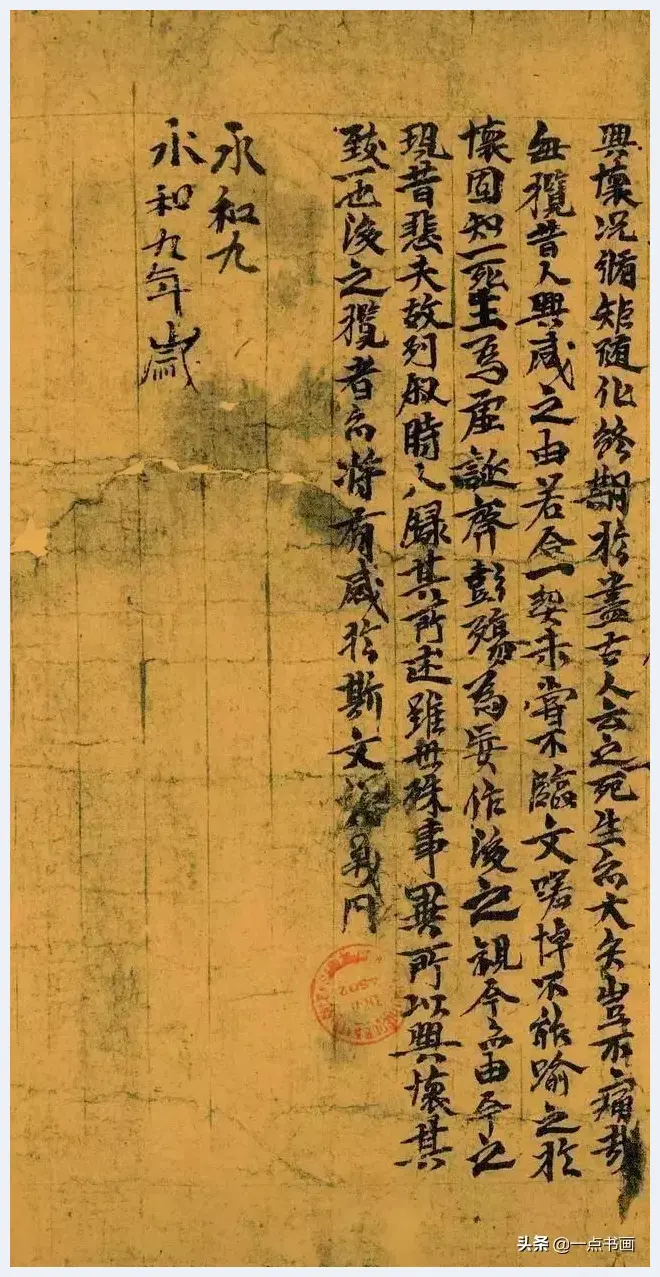 興懷况脩矩随化終期於盡古人云之死生亦大矣豈不痛哉
每攬昔人興感之由若合一契未嘗不臨文喈悼不能踰之於
懷固知一死生為虛誕齊彭殤為妄作後之視今亦由今之
視昔悲夫故列叙時人録其所述雖世殊事異所以興懷其
致一也後之攬者亦将有感於斯文
永和九
永和九年歲
头条 @一点书画